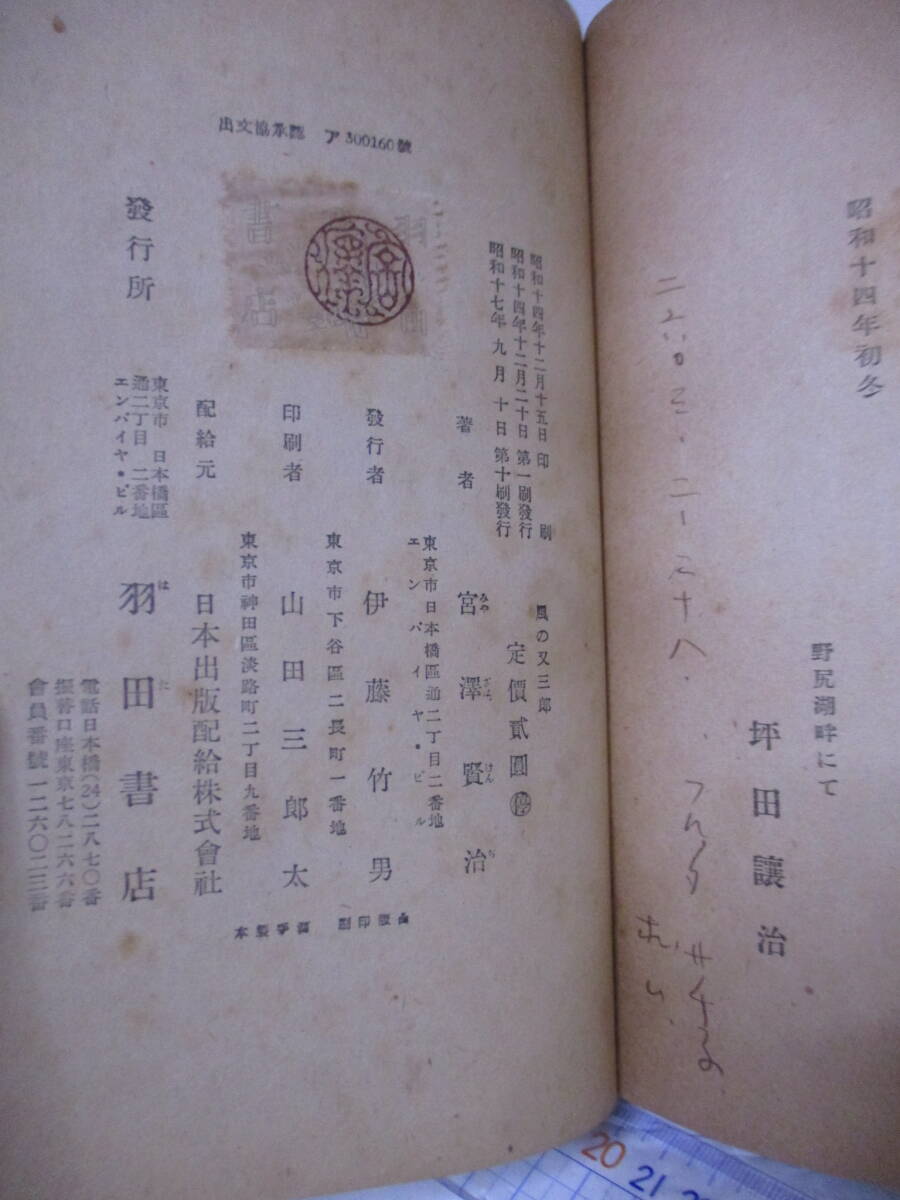 昭和十四年初冬
野尻湖畔にて
坪田讓治
出文協承認 ア300160號
昭和十四年十二月十五日 印刷
昭和十四年十二月二十日 第一刷發行
昭和十七年 九月 十日 第十刷發行
風の又三郎
定價貳圓 停
著者 宮澤賢治
みや ざは けん ぢ
東京市日本橋區通二丁目二番地
エンパイヤ・ビル
發行者 伊藤竹男
東京市下谷區二長町一番地
印刷者 山田三郎太
東京市神田區淡路町二丁目九番地
配給元 日本出版配給株式會社
發行所
東京市 日本橋區
通二丁目 二番地
エンパイヤ・ビル
羽田書店
は た
電話日本橋(24)二八七〇番
振替口座東京七八二六六番
會員番號一二六〇二三番
羽田書店
20 21